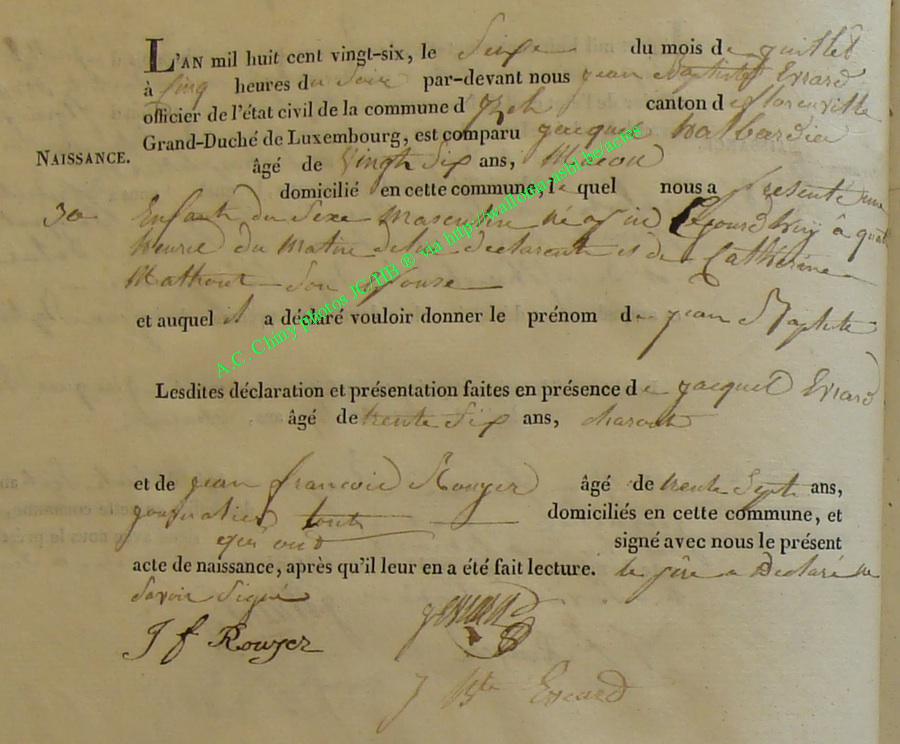 L'AN mil huit cent vingt-six, le Seize du mois de juillet
à Cinq heures du Soir par-devant nous jean Baptiste Evrard
officier de l'état civil de la commune d' Izel canton de florenville
Grand-Duché de Luxembourg, est comparu jacques halbardier
NAISSANCE.
âgé de Vingt Six ans, Maçon
domicilié en cette commune, le quel nous a présenté une
30 Enfant du Sexe Masculin né aujourd'huy à
heure du Matin de lui declarant et de Catherine
Mathout Son Epouse
et auquel il a déclaré vouloir donner le prénom de jean Baptiste
Lesdites déclaration et présentation faites en présence de jacques Evrard
âgé de trente Six ans,
et de jean francois Rouyer âgé de trente Sept ans,
journalier tout domiciliés en cette commune, et
qui ont signé avec nous le présent
acte de naissance, après qu'il leur en a été fait lecture. le père a Declaré ne
Savoir Signé
J f Rouyer
J Bte Evrard
A.C. Chiny photos JC/HB ® via http://wallonia.asbl.be/actes